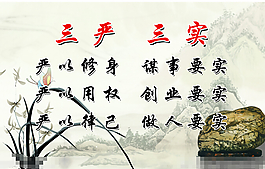 三严 三实
严以修身 谋事要实
严以用权 创业要实
严以律己 做人要实